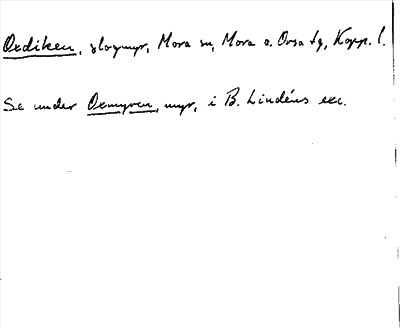 Oxdiken, slogmyr, Mora sn, Mora o. Orsa tg, Kopp. l.
Se under Oxmyren, myr, i B. Lindéns exc.